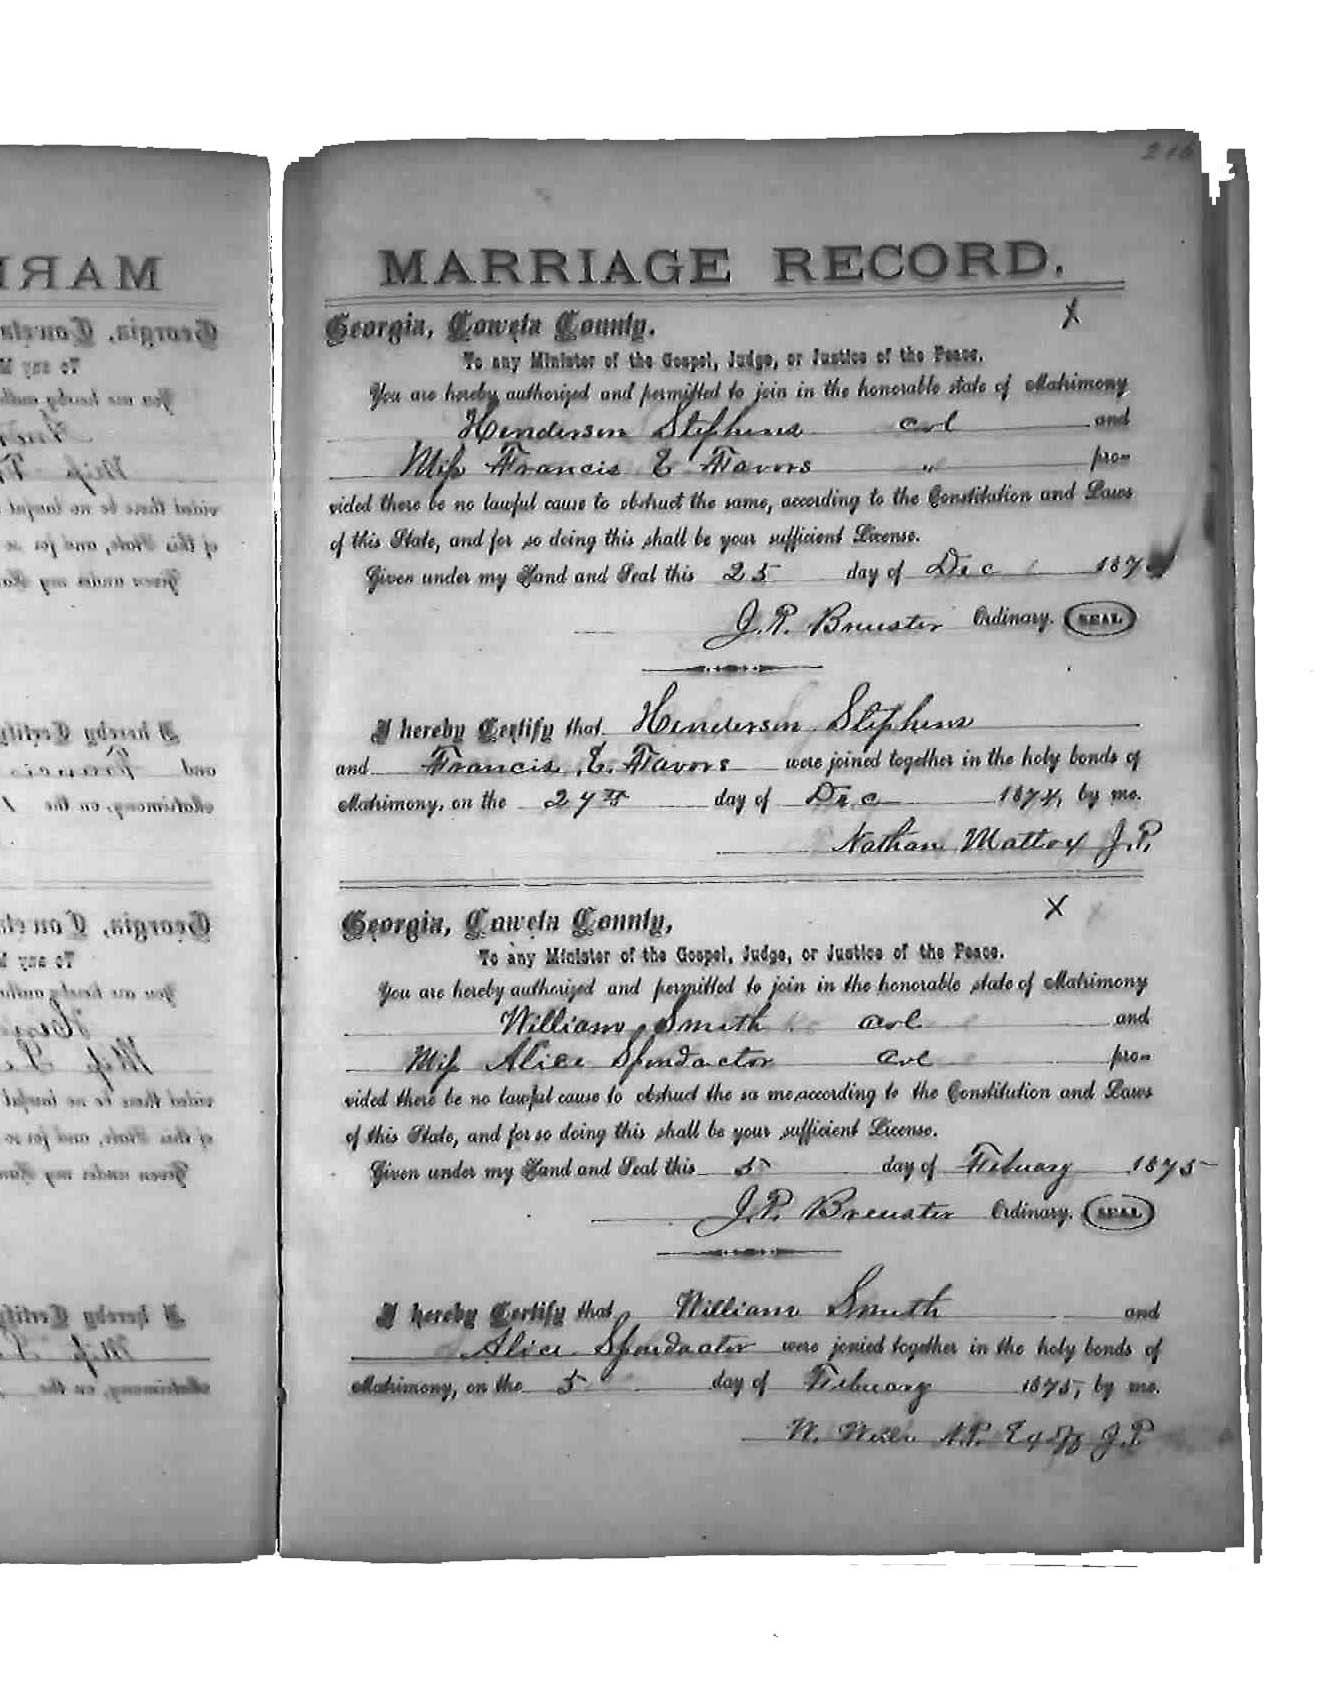 216
MARRIAGE RECORD.
Georgia, Coweta County.
X
To any Minister of the Gospel, Judge, or Justice of the Peace.
You are hereby authorized and permitted to join in the honorable state of Matrimony
Henderson Stephens col and
Miss Francis E Favors " pro-
vided there be no lawful cause to obstruct the same, according to the Constitution and Laws
of this State, and for so doing this shall be your sufficient License.
Given under my Hand and Seal this 25 day of Dec 187
J. P. Brewster Ordinary. SEAL
I hereby Certify that Henderson Stephens
and Francis E. Favors were joined together in the holy bonds of
Matrimony, on the 27th day of Dec 1874, by me.
Nathan Mattox J.P.
Georgia, Coweta County,
X
To any Minister of the Gospel, Judge, or Justice of the Peace.
You are hereby authorized and permitted to join in the honorable state of Matrimony
William Smith col and
Miss Alice Spendactor col pro-
vided there be no lawful cause to obstruct the sa me, according to the Constitution and Laws
of this State, and for so doing this shall be your sufficient License.
Given under my Hand and Seal this 5 day of Febuary 1875
J. P. Brewster Ordinary. SEAL
I hereby Certify that William Smith and
Alice Spendactor were jonied together in the holy bonds of
Matrimony, on the 5 day of Febuary 1875, by me.
W. N.P. Exoff J.P